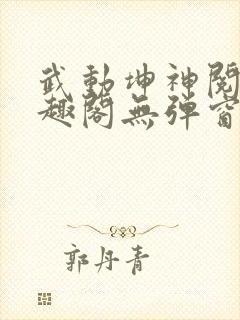 武動坤神閱
趣閣無彈窗
郭丹青